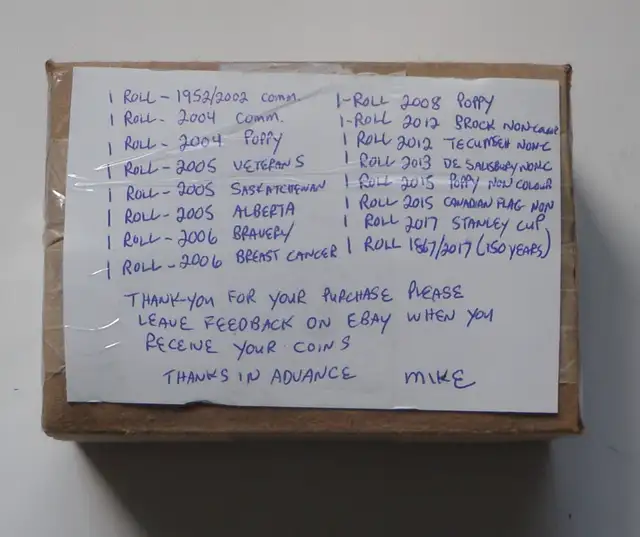 1 ROLL - 1952/2002 COMM.
1 ROLL - 2004 COMM.
1 ROLL - 2004 POPPY
1 ROLL - 2005 VETERANS
1 ROLL - 2005 SASKATCHEWAN
1 ROLL - 2005 ALBERTA
1 ROLL - 2006 BRAVERY
1 ROLL - 2006 BREAST CANCER
1-ROLL 2008 POPPY
1-ROLL 2012 BROCK NON COLOUR
1 ROLL 2012 TECUMSEH NON C
1 ROLL 2013 DE SALISBURY NON C
1 ROLL 2015 POPPY NON COLOUR
1 ROLL 2015 CANADIAN FLAG NON
1 ROLL 2017 STANLEY CUP
1 ROLL 1867/2017 (150 YEARS)
THANK-YOU FOR YOUR PURCHASE PLEASE
LEAVE FEEDBACK ON EBAY WHEN YOU
RECEIVE YOUR COINS
THANKS IN ADVANCE MIKE